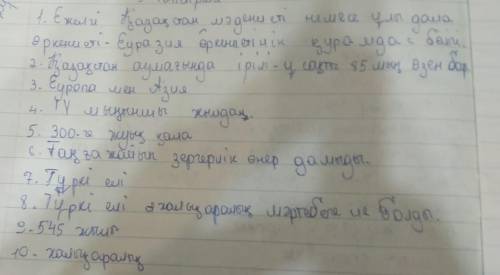 1. Ежелгі Қазақстан мәдениеті немесе ұлы дала
өркениеті - Еуразия өркениетінің құрамдас бөлігі.
2. Қазақстан аумағында ірілі-ұсақты 85 мың өзен бар.
3. Еуропа мен Азия
4. IV мыңыншы жылдан.
5. 300-ге жуық қала
6. Таңғажайып зергерлік өнер дамыды.
7. Түркі елі
8. Түркі елі халықаралық мәртебеге ие болды.
9. 545 жылы
10. халықаралық